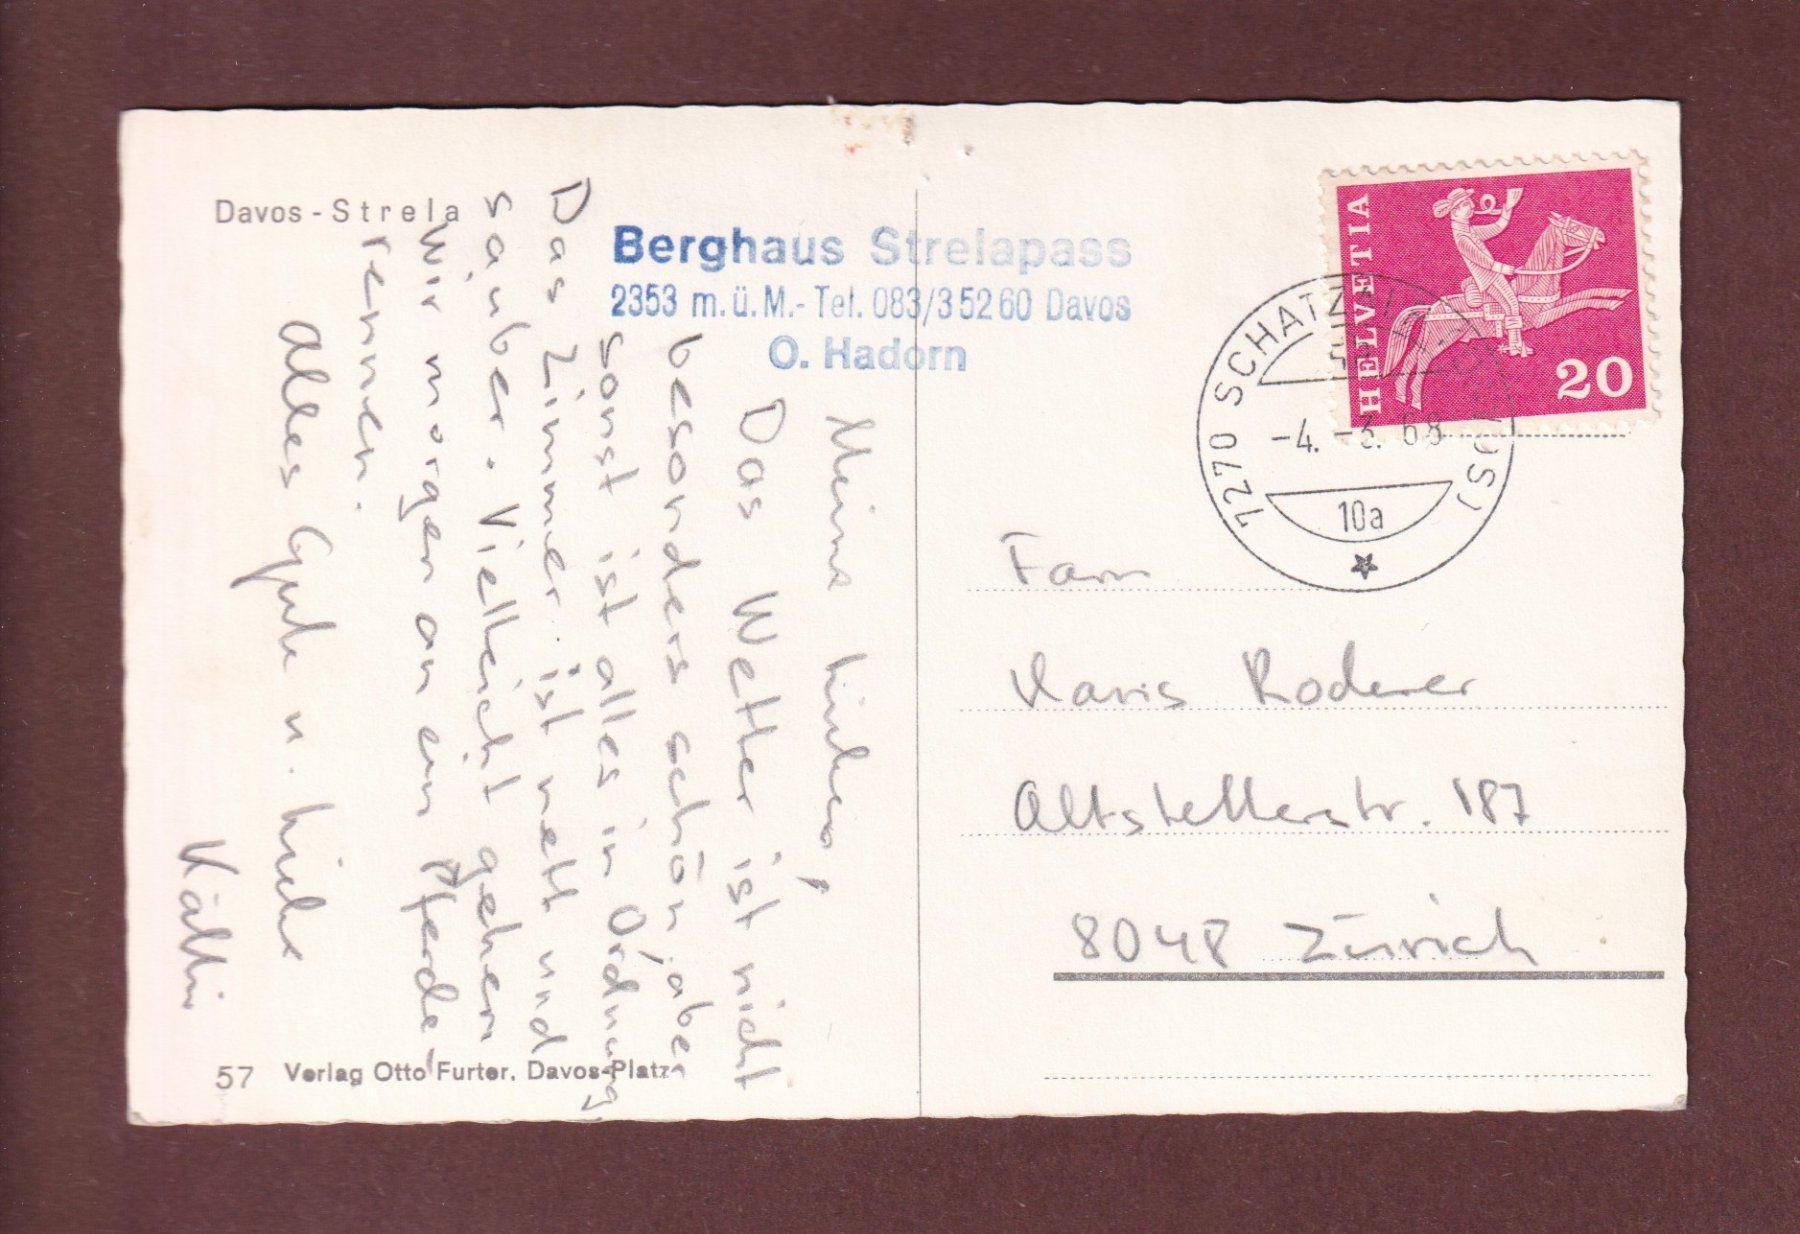 Davos - Strela
Berghaus Strelapass
2353 m.ü.M.- Tel. 083/35260 Davos
O. Hadorn
Das Wetter ist nicht
besonders schön, aber
sonst ist alles in Ordnung
Das Zimmer ist nett und
sauber. Vielleicht gehen
wir morgen an ein Pferde
rennen.
Alles Gute u.
57 Verlag Otto Furter, Davos-Platz
HELVETIA
20
7270 SCHATZALP (DAVOS)
-4.-3.68
10a
Fam
Roderer
Altstetterstr. 187
8048 Zürich